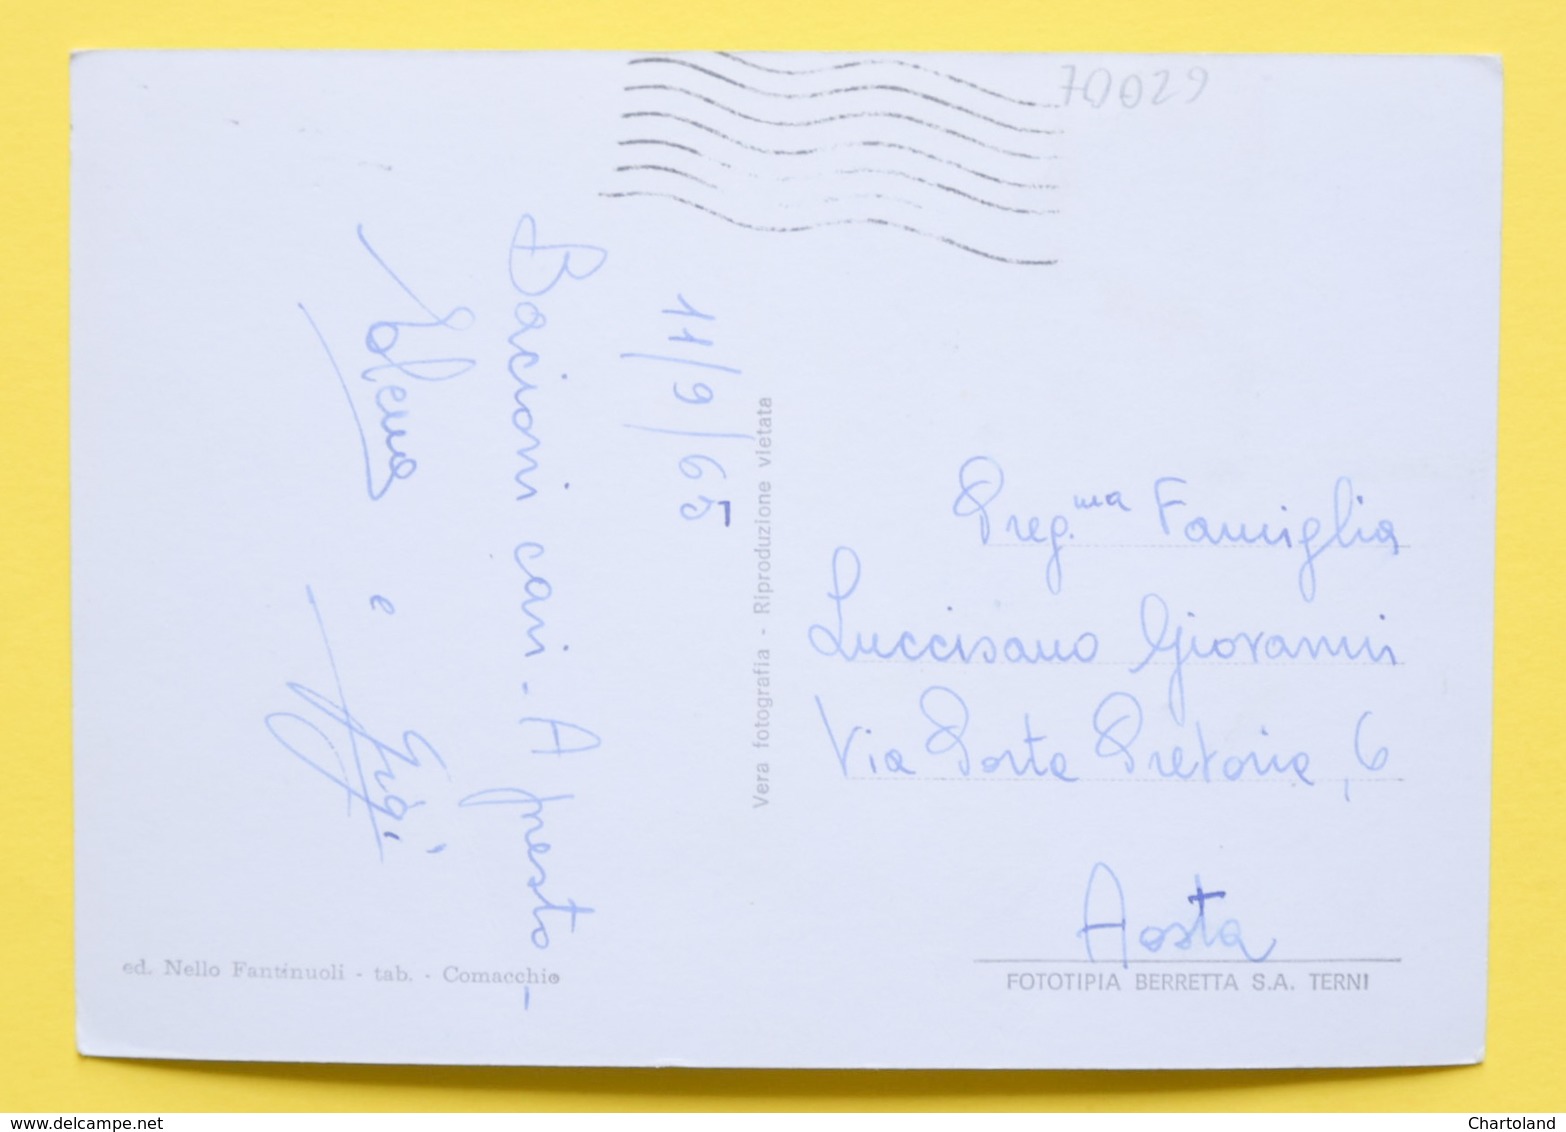 70029
11/9/65
Bacioni cari - A presto -
e Gigi
Preg.ma Famiglia
Luccisano Giovanni
Via Porte Pretorie, 6
Aosta
Vera fotografia - Riproduzione vietata
ed. Nello Fantinuoli - tab. - Comacchio
FOTOTIPIA BERRETTA S.A. TERNI
delcampe.net
Chartoland